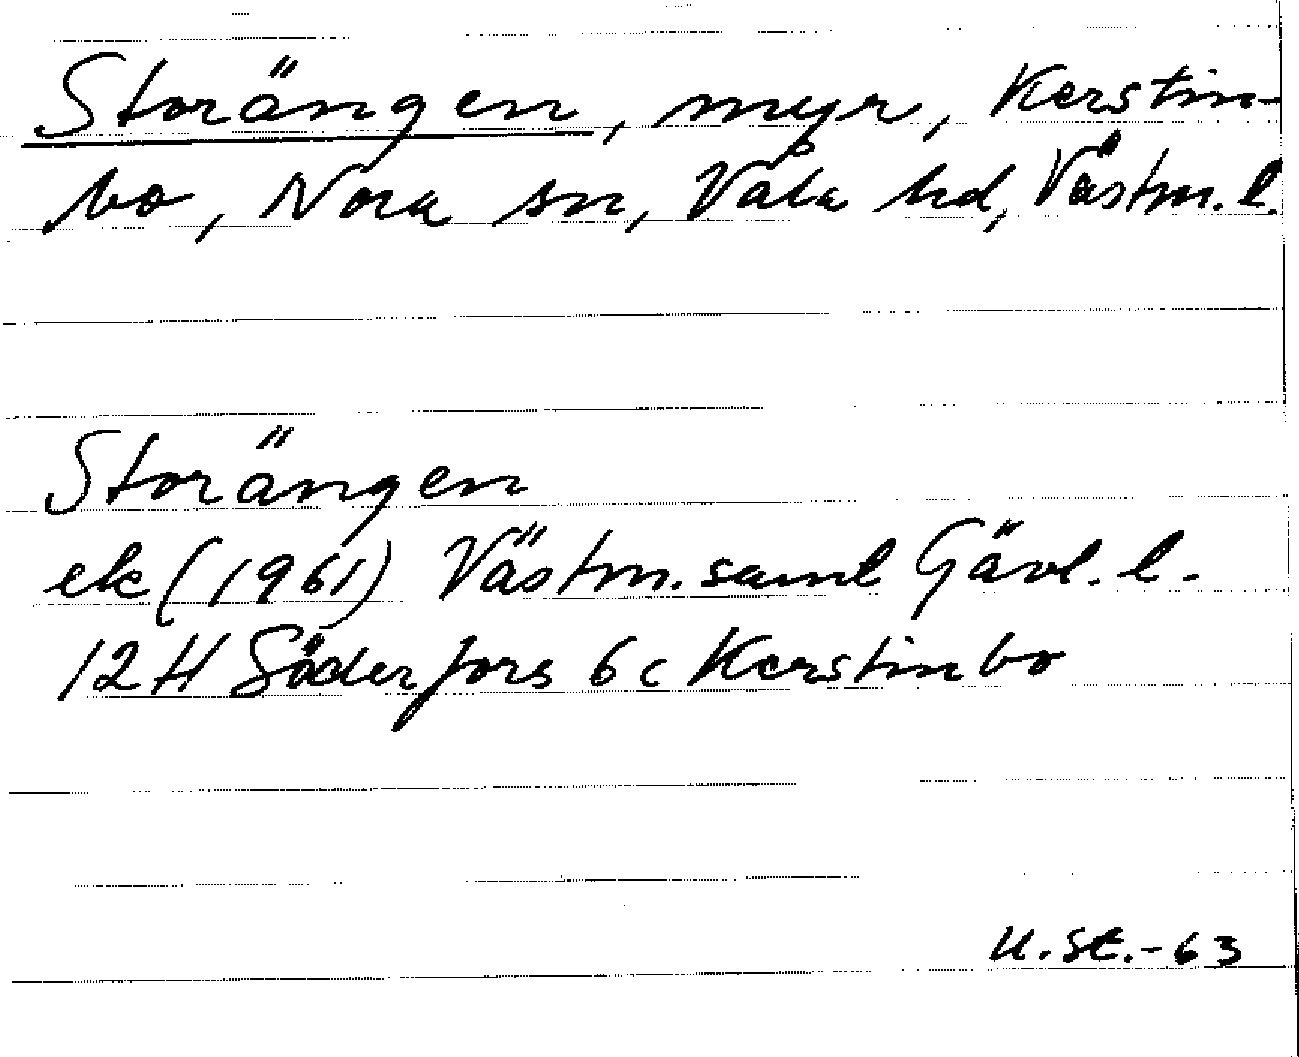 Storängen, myr, Kerstin-
bo, Nora sn, Våla hd, Västm. l.
Storängen
ek (1961) Västm. saml Gävl. l.
12 H Söderfors 6 c Kerstinbo
U. St. -63